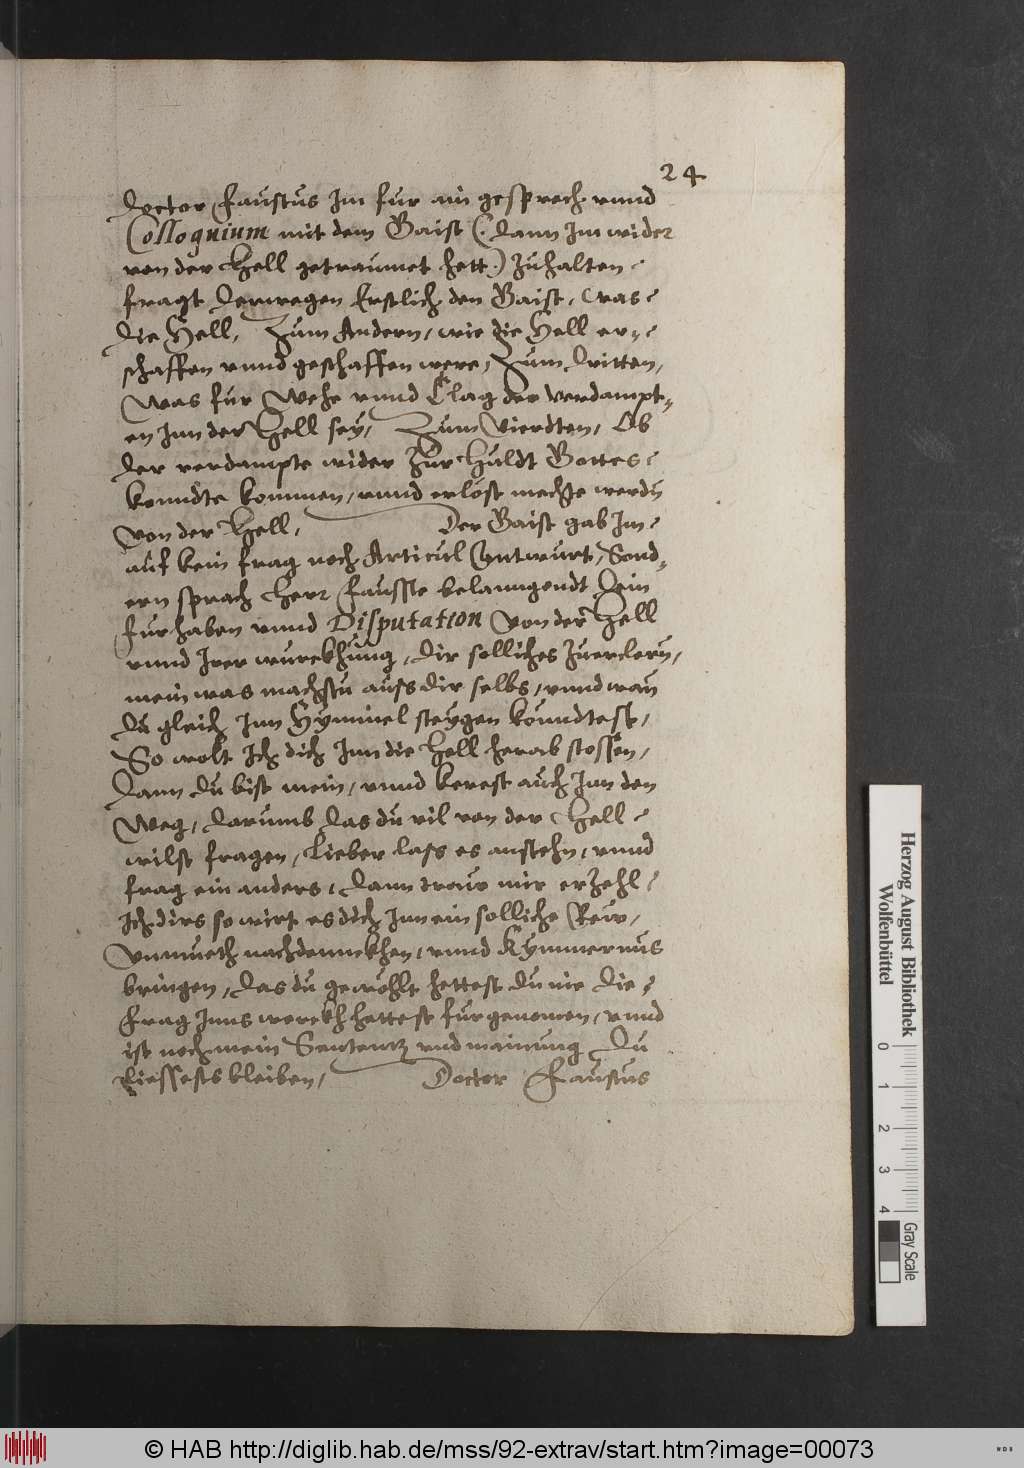 24
doctor Faustus Im fur ain gesprech vnnd
Colloquium mit dem Gaist (: dann Im wider
von der Hell getraumet hett:) zuhalten
fragt derwegen Erstlich den Gaist, was
die Hell, Zum Andern, wie die Hell er-
schaffen vnnd geschaffen were, Zum dritten,
Was fur Wehe vnnd Clag der verdampt-
en Inn der Hell sey, Zum Vierdten, Ob
der verdampte wider zur Huldt Gottes
konndte kommen, vnnd erlöst mechte werdn
von der Hell, Der Gaist gab Im
auf kein frag noch Articul Anntwurt, Sond-
ern sprach Herr Fausste belanngendt dein
furhaben vnnd Disputation von der Hell
vnnd Irer wurckhung, dir solliches zuerclern,
mein was machstu auss dir selbs, vnnd wan
du gleich Inn Hymmel steygen konndtest,
So wolt Ich dich Inn die Hell herab stossen,
Dann du bist mein, vnnd kerest auch Inn den
Weg, darumb das du vil von der Hell
wilst fragen, Lieber lass es anstehn, vnnd
frag ein anders, dann traw mir erzehl
Ich dirs so wirt es dich Inn ein solliche Rew,
Vnmueth nachdennckhen, vnnd Kymmernus
bringen, das du gewohlt hettest du nie die
Frag Inns werckh hettest furgenomen, vnnd
ist noch mein Sententz vnd mainung du
Liessests bleiben, Doctor Faustus
Herzog August Bibliothek
Wolfenbüttel
0 1 2 3 4
Gray Scale
© HAB http://diglib.hab.de/mss/92-extrav/start.htm?image=00073
WDB